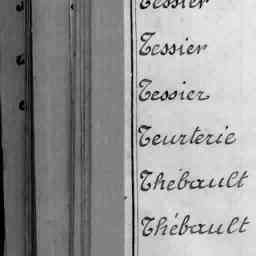 Tessier
Tessier
Tessier
Teurterie
Thébault
Thébault